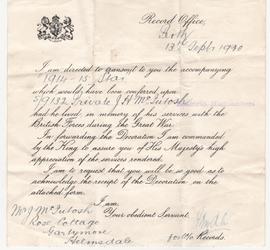 Record Office,
Perth
13th Sept. 1920
I am directed to transmit to you the accompanying
1914-15 Star
which would have been conferred upon
S/9132 Private J. H. McIntosh
had he lived, in memory of his services with the
British Forces during the Great War.
In forwarding the Decoration I am commanded
by the King to assure you of His Majesty's high
appreciation of the services rendered.
I am to request that you will be so good as to
acknowledge the receipt of the Decoration on the
attached form.
I am,
Your obedient Servant,
Mr J. McIntosh
Rose Cottage
Gartymore
Helmsdale
for O. i/c Records.